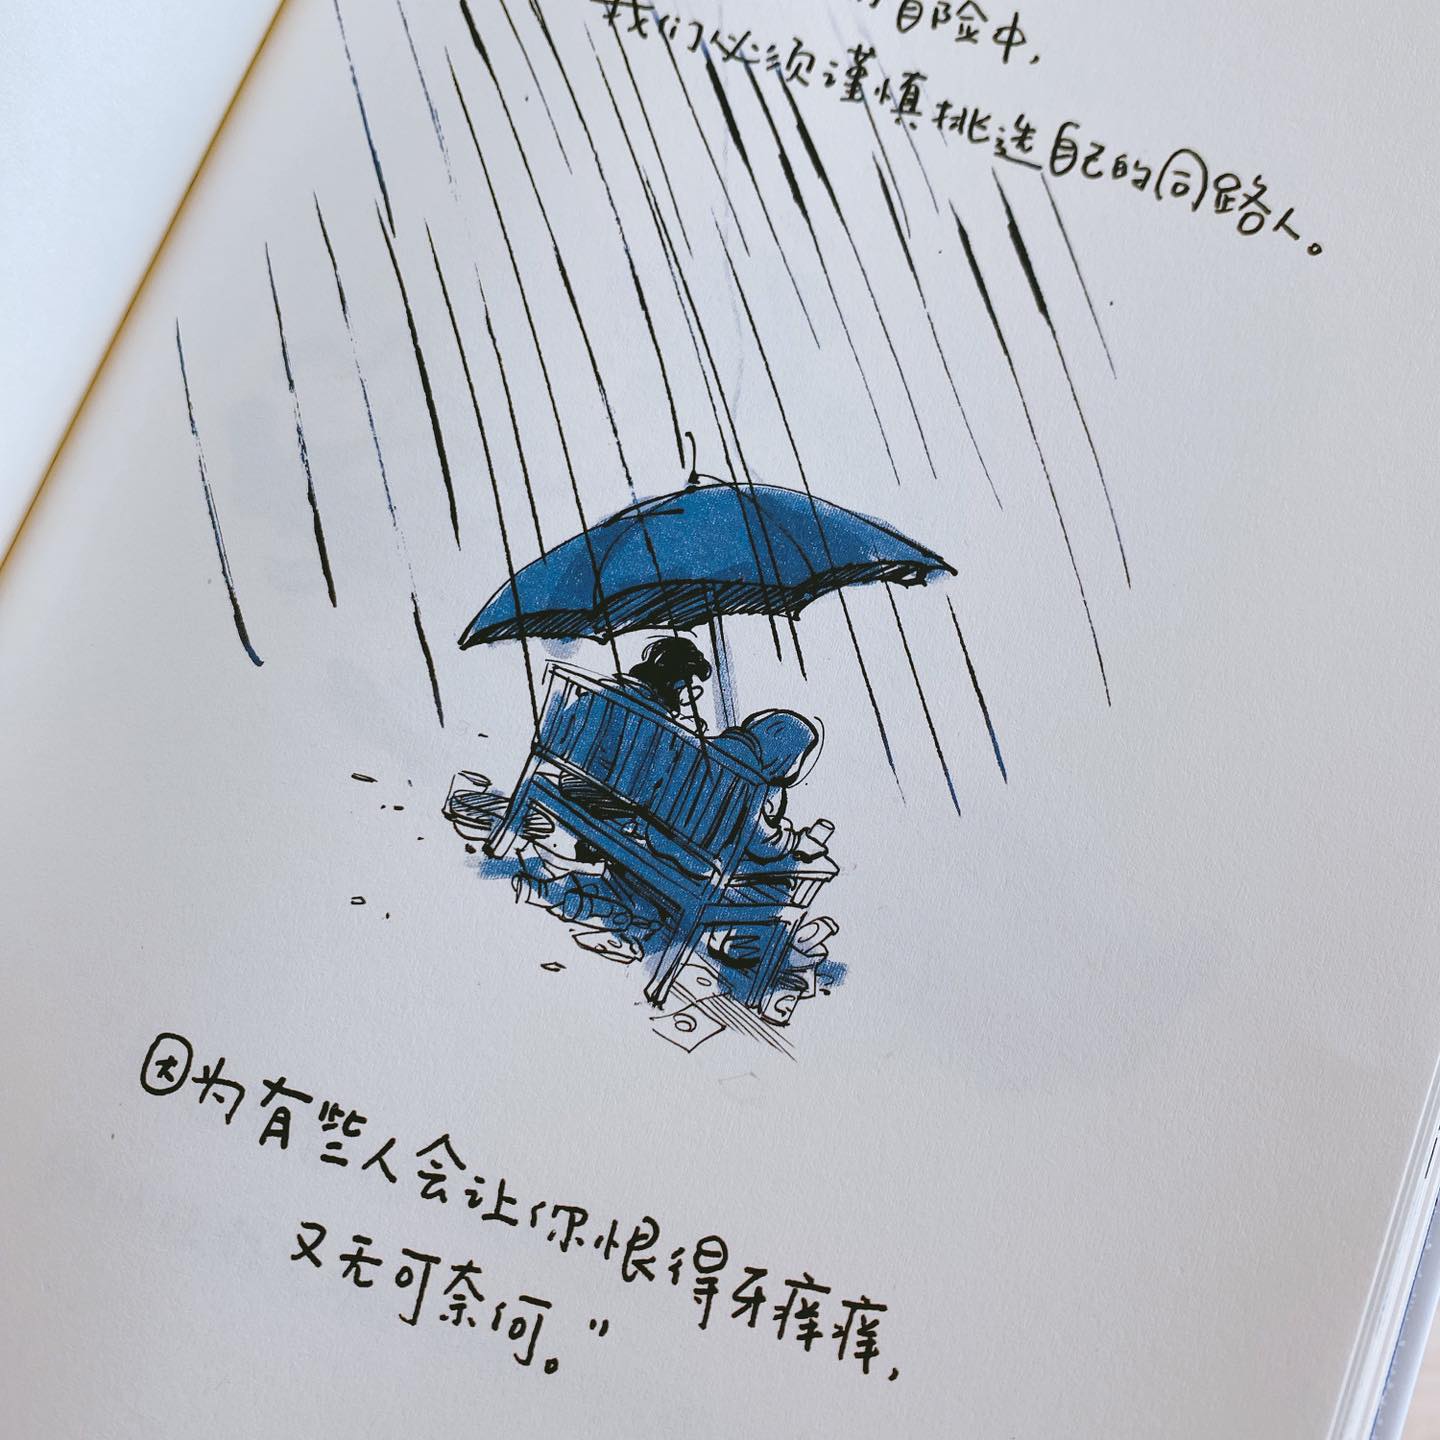 冒险中，
我们必须谨慎挑选自己的同路人。
因为有些人会让你恨得牙痒痒，
又无可奈何。”